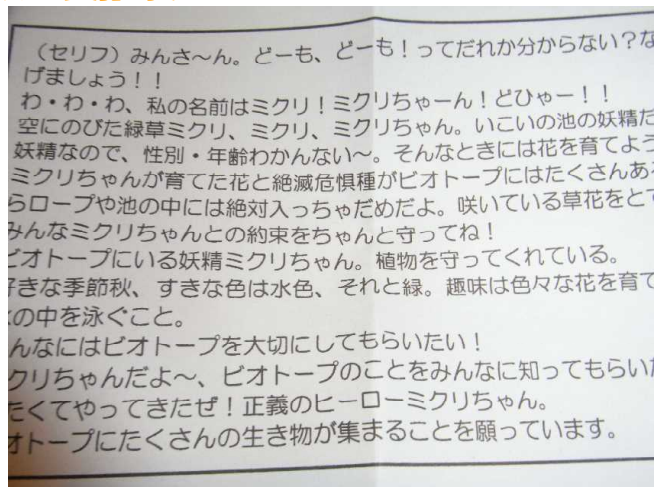 （セリフ）みんさ～ん。どーも、どーも！ってだれか分からない？な
げましょう！！
わ・わ・わ、私の名前はミクリ！ミクリちゃーん！どひゃー！！
空にのびた緑草ミクリ、ミクリ、ミクリちゃん。いこいの池の妖精だ
妖精なので、性別・年齢わかんない～。そんなときには花を育てよう
ミクリちゃんが育てた花と絶滅危惧種がビオトープにはたくさんある
らロープや池の中には絶対入っちゃだめだよ。咲いている草花をとて
みんなミクリちゃんとの約束をちゃんと守ってね！
ビオトープにいる妖精ミクリちゃん。植物を守ってくれている。
好きな季節秋、すきな色は水色、それと緑。趣味は色々な花を育て
の中を泳ぐこと。
んなにはビオトープを大切にしてもらいたい！
クリちゃんだよ～、ビオトープのことをみんなに知ってもらいた
たくてやってきたぜ！正義のヒーローミクリちゃん。
オトープにたくさんの生き物が集まることを願っています。